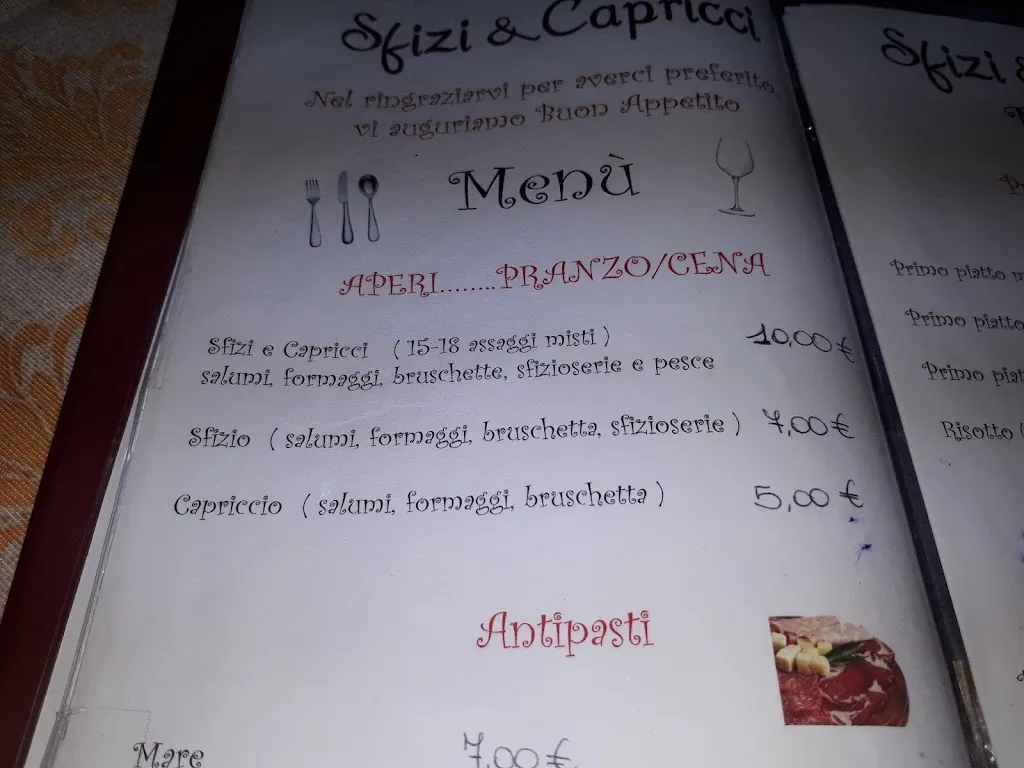 Sfizi & Capricci
Nel ringraziarvi per averci preferito,
vi auguriamo Buon Appetito
Menù
APERI........PRANZO/CENA
Sfizi e Capricci ( 15-18 assaggi misti ) 10,00 €
salumi, formaggi, bruschette, sfizioserie e pesce
Sfizio ( salumi, formaggi, bruschetta, sfizioserie ) 7,00 €
Capriccio ( salumi, formaggi, bruschetta ) 5,00 €
Antipasti
Mare 7,00 €
Sfizi &
Primo piatto
Primo piatto
Primo
Risotto (